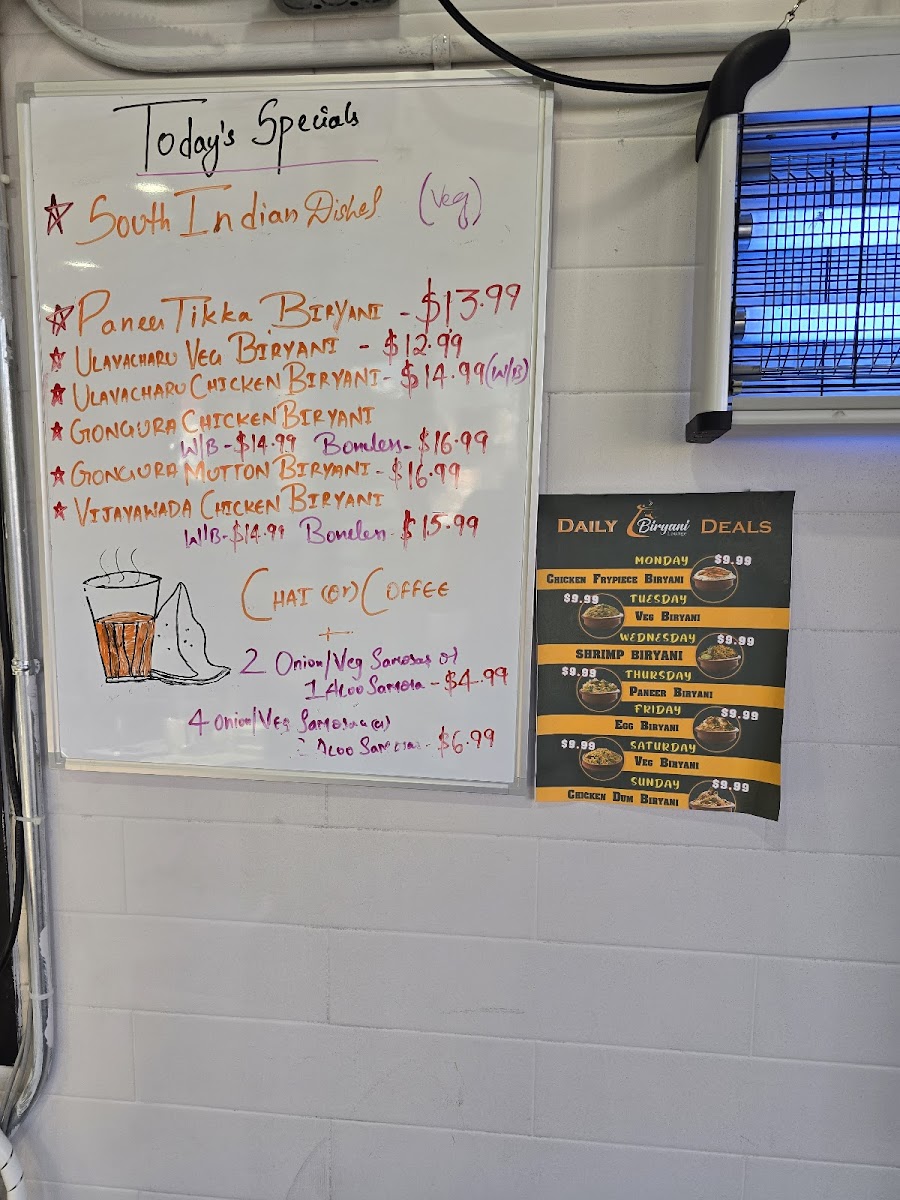 Today's Specials
South Indian Dishes (Veg)
Paneer Tikka Biryani - $13.99
Ulavacharu Veg Biryani - $12.99
Ulavacharu Chicken Biryani - $14.99 (W/B)
Gongura Chicken Biryani
W/B - $14.99 Boneless - $16.99
Gongura Mutton Biryani - $16.99
Vijayawada Chicken Biryani
W/B - $14.99 Boneless - $15.99
Chai (or) Coffee
+
2 Onion/Veg Samosas or
1 Aloo Samosa - $4.99
4 Onion/Veg Samosas (or)
2 Aloo Samosas - $6.99
DAILY Biryani DEALS
MONDAY $9.99
CHICKEN FRYPIECE BIRYANI
$9.99 TUESDAY
VEG BIRYANI
WEDNESDAY $9.99
SHRIMP BIRYANI
$9.99 THURSDAY
PANEER BIRYANI
FRIDAY $9.99
EGG BIRYANI
$9.99 SATURDAY
VEG BIRYANI
SUNDAY $9.99
CHICKEN DUM BIRYANI